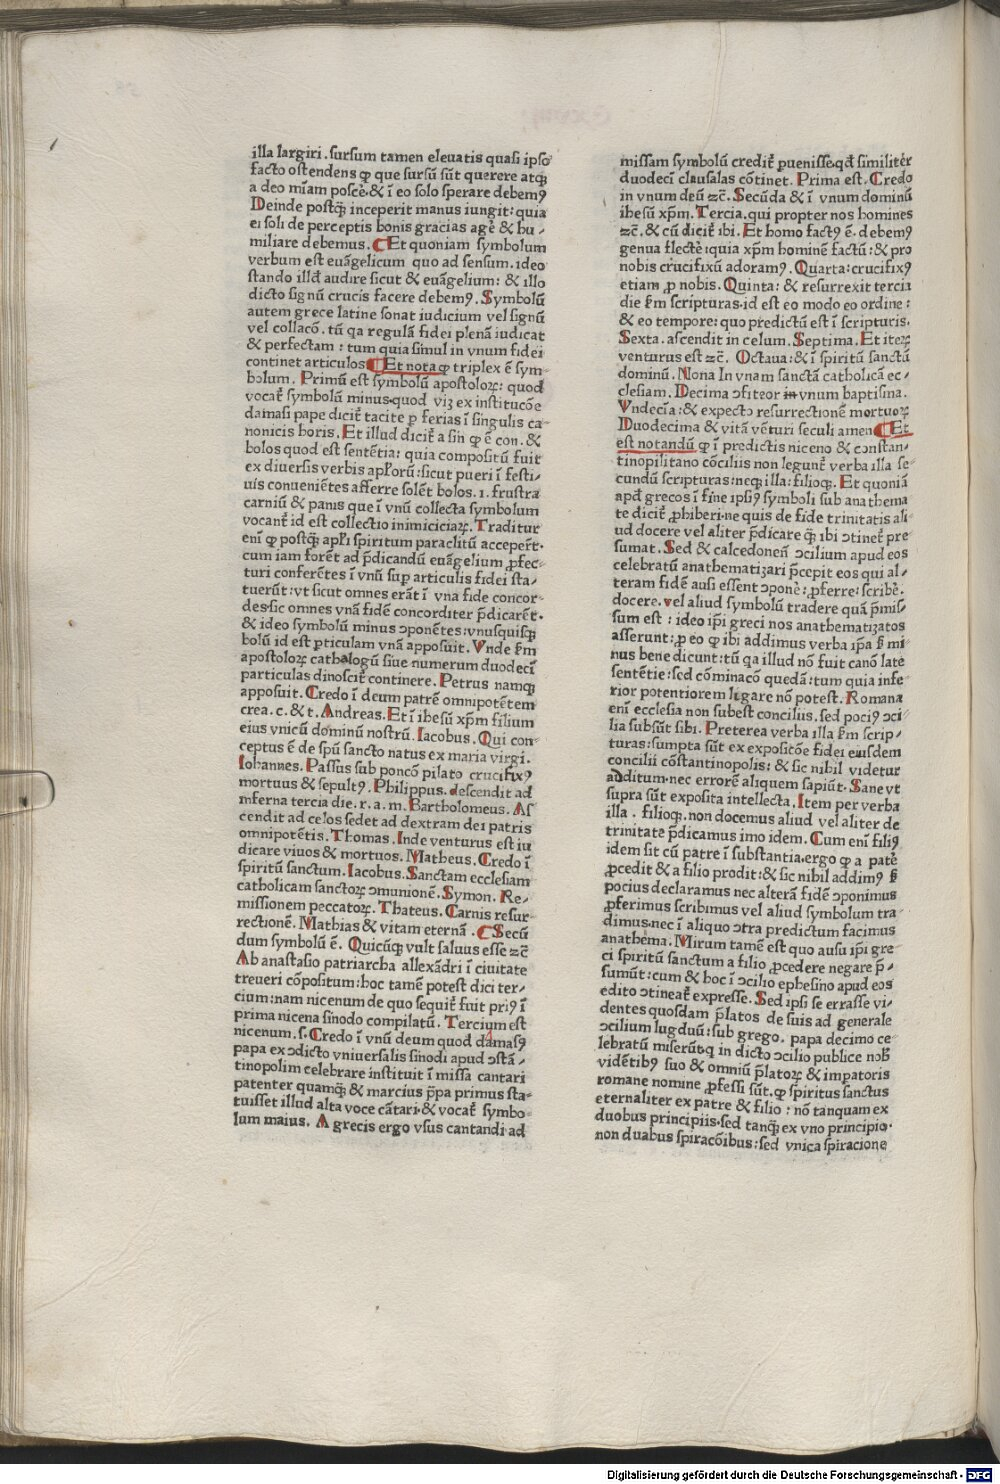 illa largiri. sursum tamen eleuatis quasi ipso
facto ostendens ꝙ que sursū sūt querere atqꝫ
a deo miam poscē.& ī eo solo sperare debemꝰ
Deinde postqꝫ inceperit manus iungit: quia
ei soli de perceptis bonis gracias agē & hu-
miliare debemus. Et quoniam symbolum
verbum est euāgelicum quo ad sensum. ideo
stando illď audire sicut & euāgelium: & illo
dicto signū crucis facere debemꝰ. Symbolū
autem grece latine sonat iudicium vel signū
vel collacō. tū qa regulā fidei plenā iudicat
& perfectam : tum quia simul in vnum fidei
continet articulos Et nota ꝙ triplex ē sym-
bolum. Primū est symbolū apostoloꝝ: quod
vocat̄ symbolū minus.quod viꝫ ex institucōe
damasi pape dicit̄ tacite ꝑ ferias ī singulis ca-
nonicis horis. Et illud dicit̄ a sin ꝙ ē con. &
bolos quod est sentētia: quia compositū fuit
ex diuersis verbis apl'oꝝū: sicut pueri ī festi-
uis conueniētes afferre solēt bolos. i. frustra
carniū & panis que ī vnū collecta symbolum
vocant̄ id est collectio inimiciciaꝝ. Traditur
enī ꝙ postqꝫ apl'i spiritum paraclitū accepert̄.
cum iam forēt ad p̄dicandū euāgelium ꝓfec-
turi conferētes ī vnū sup articulis fidei sta-
tuerūt: vt sicut omnes erāt ī vna fide concor-
des.sic omnes vnā fidē concorditer p̄dicarēt.
& ideo symbolū minus ↄponētes: vnusquisqꝫ
bolū id est ꝑticulam vnā apposuit. Vnde scdm
apostoloꝝ cathalogū siue numerum duodecī
particulas dinoscit̄ continere. Petrus namqꝫ
apposuit. Credo ī deum patrē omnipotētem
crea. c. & t. Andreas. Et ī ihesū xp̄m filium
eius vnicū dominū nostrū. Iacobus. Qui con-
ceptus ē de spū sancto natus ex maria virgi.
Iohannes. Passus sub poncō pilato crucifixꝰ
mortuus & sepultꝰ. Philippus. descendit ad
inferna tercia die. r. a. m. Bartholomeus. As
cendit ad celos sedet ad dextram dei patris
omnipotētis. Thomas. Inde venturus est iu
dicare viuos & mortuos. Matheus. Credo ī
spiritū sanctum. Iacobus. Sanctam ecclesiam
catholicam sanctoꝝ ↄmunionē. Symon. Re-
missionem peccatoꝝ. Thateus. Carnis resur-
rectionē. Mathias & vitam eternā . Secū
dum symbolū ē. Quicūqꝫ vult saluus esse ⁊c̄
Ab anastasio patriarcha allexādri ī ciuitate
treueri cōpositum: hoc tamē potest dici ter-
cium: nam nicenum de quo sequit̄ fuit priꝰ ī
prima nicena sinodo compilatū. Tercium est
nicenum. s. Credo ī vnū deum quod damasꝰ
papa ex ↄdicto vniuersalis sinodi apud ↄstā-
tinopolim celebrare instituit ī missa cantari
patenter quamqꝫ & marcius p̄pa primus sta-
tuisset illud alta voce cātari.& vocat̄ symbo-
lum maius. A grecis ergo vsus cantandi ad
missam symbolū credit̄ ꝑuenisse.qď similiter
duodeci clausalas cōtinet. Prima est. Credo
in vnum deū ⁊c̄. Secūda & ī vnum dominū
ihesū xp̄m. Tercia.qui propter nos homines
⁊c̄. & cū dicit̄ ibi. Et homo factꝰ ē. debemꝰ
genua flectē: quia xp̄m hominē factū: & pro
nobis crucifixū adoramꝰ. Quarta: crucifixꝰ
etiam ꝓ nobis. Quinta: & resurrexit tercia
die scdm scripturas.id est eo modo eo ordine :
& eo tempore: quo predictū est ī scripturis.
Sexta. ascendit in celum. Septima. Et iteꝝ
venturus est ⁊c̄. Octaua: & ī spiritū sanctū
dominū. Nona In vnam sanctā catholicā ec-
clesiam. Decima ↄfiteor in vnum baptisma.
Vndecīa: & expecto resurrectionē mortuoꝝ
Duodecima & vitā vēturi seculi amen Et
est notandū ꝙ ī predictis niceno & constan-
tinopilitano cōciliis non legunt̄ verba illa se-
cundū scripturas: neqꝫ illa: filioqꝫ. Et quoniā
apď grecos ī fine ipsiꝰ symboli sub anathema
te dicit̄ ꝓhiberi.ne quis de fide trinitatis ali-
ud docere vel aliter p̄dicare qꝫ ibi ↄtinet̄ pre-
sumat. Sed & calcedonen̄ ↄcilium apud eos
celebratū anathematizari p̄cepit eos qui al-
teram fidē ausi essent ↄponē: ꝓferre: scribē.
docere. vel aliud symbolū tradere quā p̄mis-
sum est : ideo ip̄i greci nos anathematizatos
asserunt: ꝓ eo ꝙ ibi addimus verba ip̄a s̄ mi-
nus bene dicunt: tū qa illud nō fuit canō late
sentētie: sed cōminacō quedā: tum quia infe-
rior potentiorem ligare nō potest. Romana
enī ecclesia non subest conciliis. sed pociꝰ ↄci-
lia subsūt sibi. Preterea verba illa scdm scrip-
turas: sumpta sūt ex expositōe fidei eiusdem
concilii cōstantinopolis: & sic nihil videtur
additum.nec errorē aliquem sapiūt. Sane vt
supra sūt exposita intellecta. Item per verba
illa . filioqꝫ. non docemus aliud vel aliter de
trinitate p̄dicamus imo idem. Cum enī filiꝰ
idem sit cū patre ī substantia.ergo ꝙ a patē
ꝓcedit & a filio prodit: & sic nihil addimꝰ s̄
pocius declaramus nec alterā fidē ↄponimus
ꝓferimus scribimus vel aliud symbolum tra-
dimus.nec ī aliquo ↄtra predictum facimus
anathema. Mirum tamē est quo ausu ip̄i gre-
ci spiritū sanctum a filio ꝓcedere negare p̄-
sumūt: cum & hoc ī ↄcilio ephesino apud eos
edito ↄtineat̄ expresse. Sed ipsi se errasse vi-
dentes quosdam p̄latos de suis ad generale
ↄcilium lugduū: sub grego. papa decimo ce-
lebratū miserūt.q in dicto ↄcilio publice nob̄
vidētibꝰ suo & omniū p̄latoꝝ & impatoris
romane nomine ꝓfessi sūt. ꝙ spiritus sanctus
eternaliter ex patre & filio : nō tanquam ex
duobus principiis.sed tanqꝫ ex vno principio.
non duabus spiracōibus: sed vnica spiracione
Digitalisierung gefördert durch die Deutsche Forschungsgemeinschaft - DFG